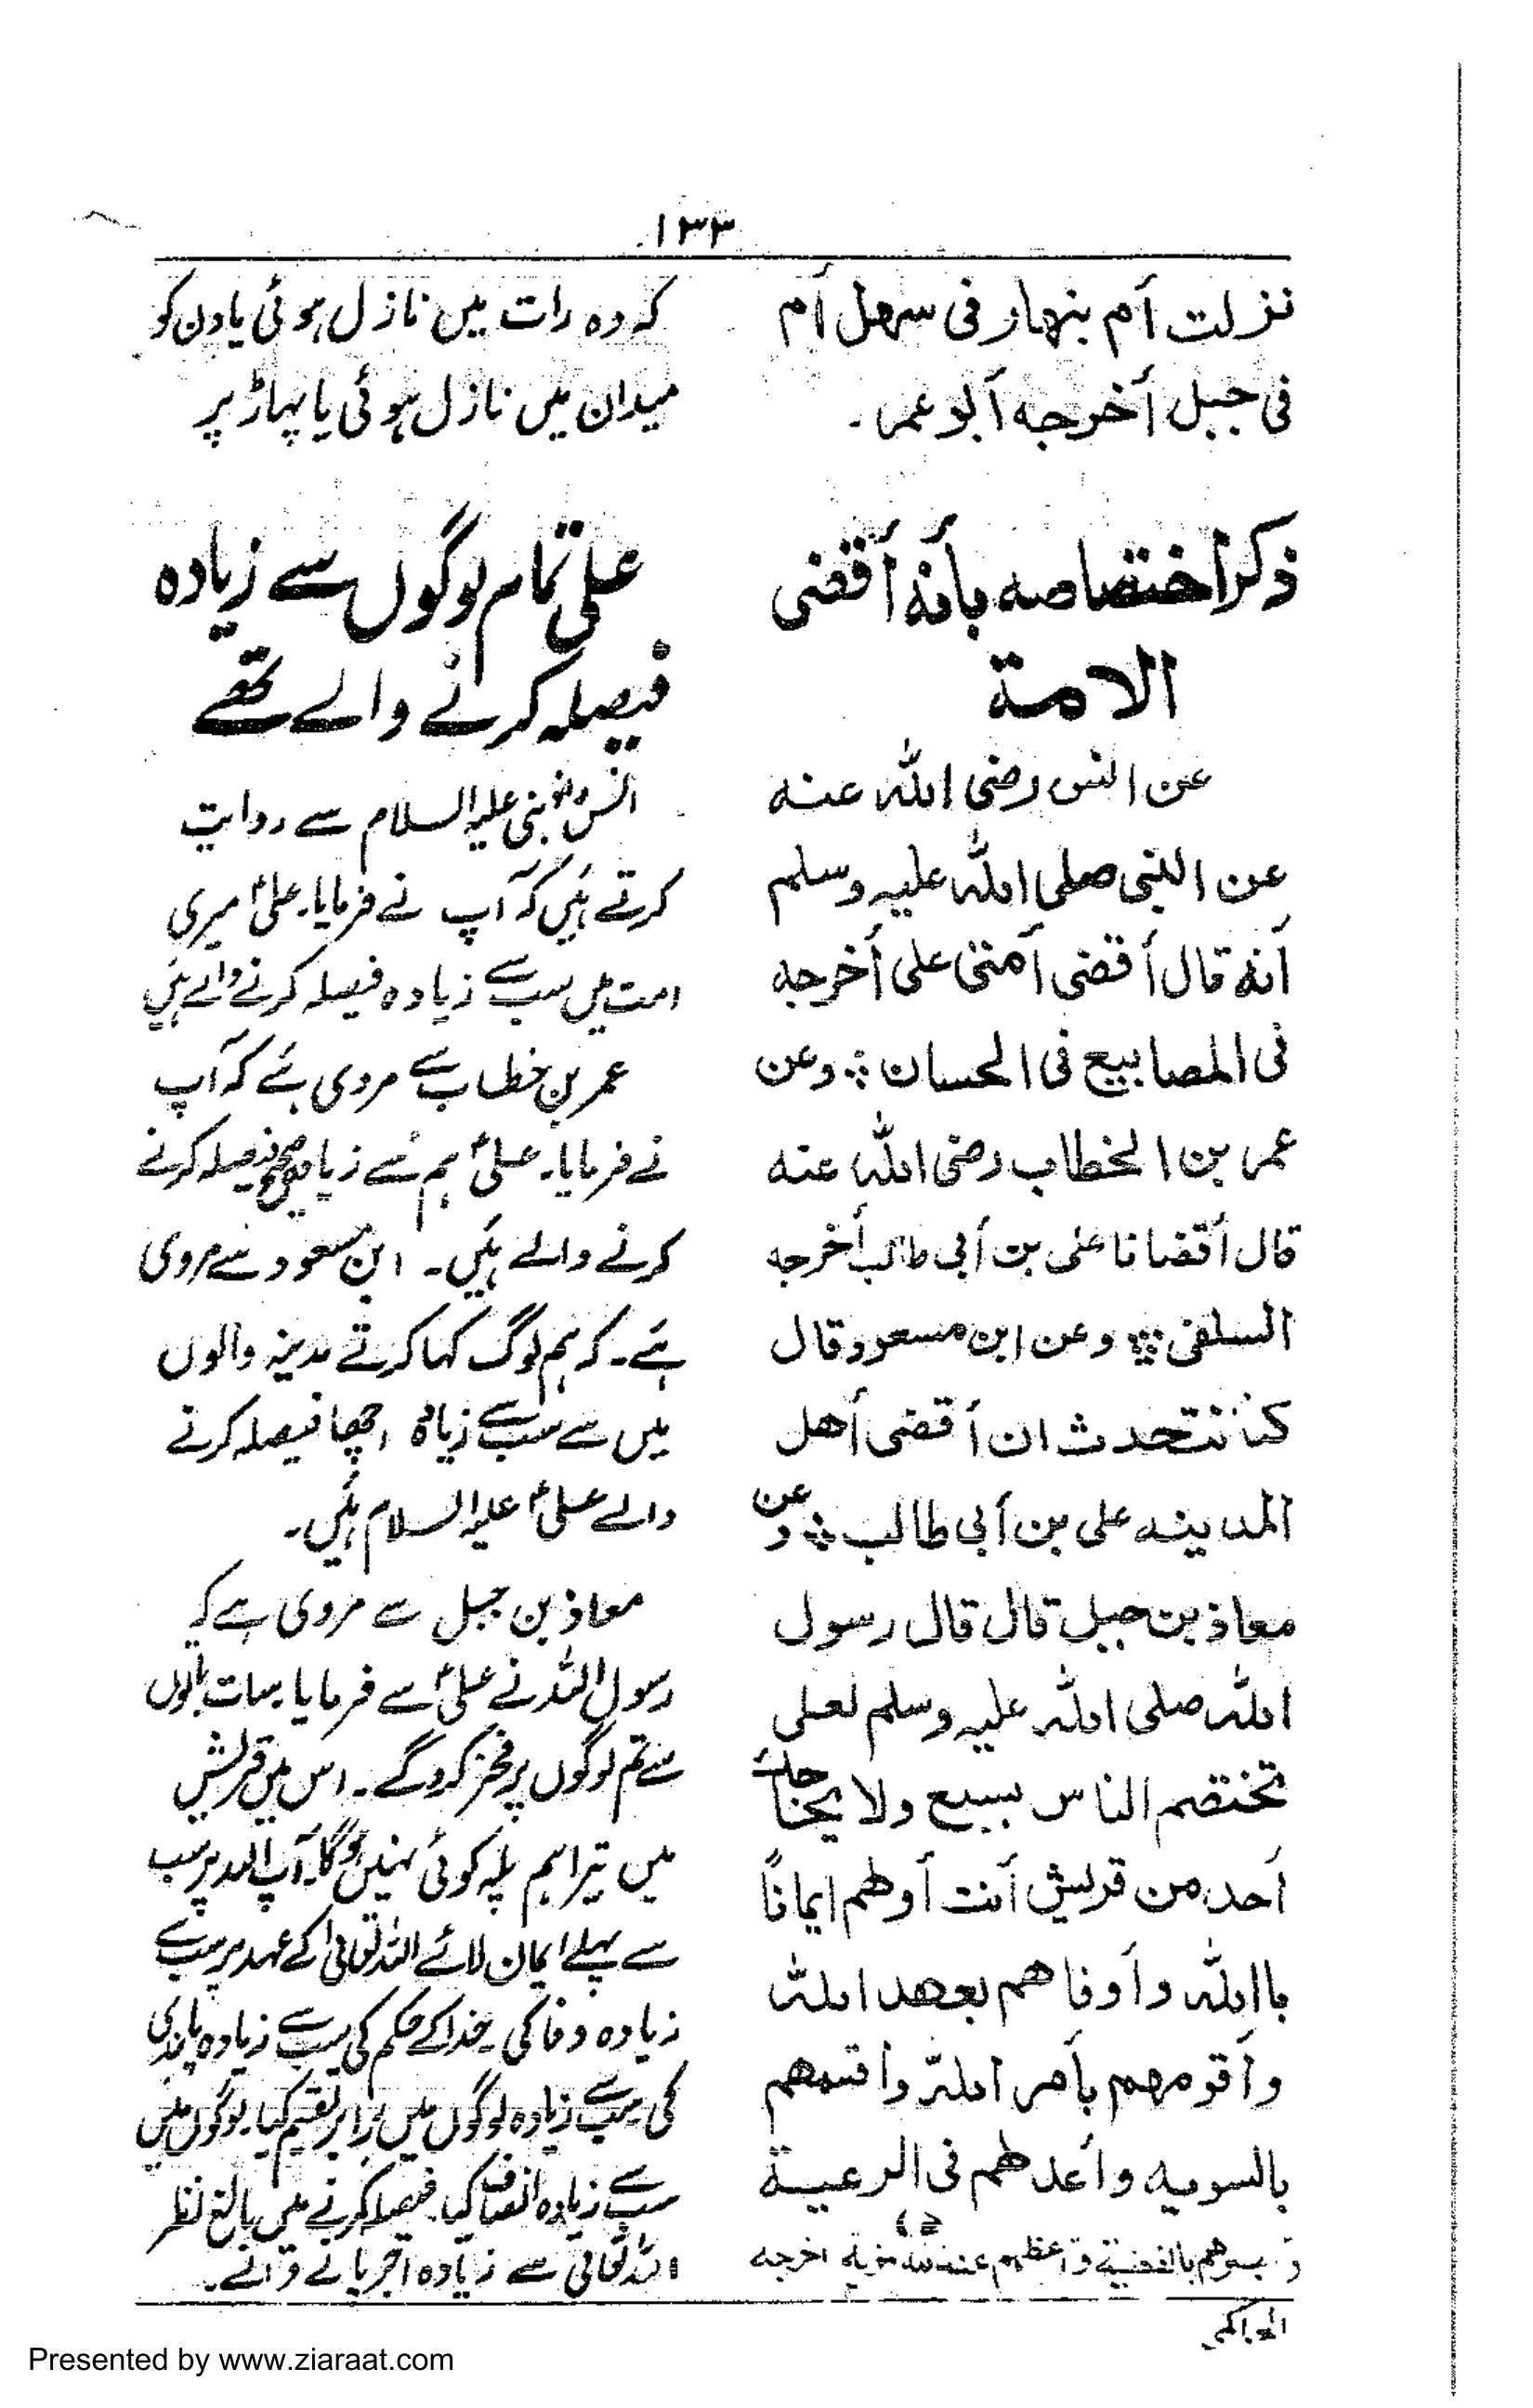 ۱۳۳
نزلت أم بنهار فی سهل أم
فی جبل أخرجه أبو عمر۔
ذکر اختصاصه بأنه أقضی
الامة
عن انس رضی الله عنه
عن النبی صلی الله علیه وسلم
أنه قال أقضی أمتی علی أخرجه
فی المصابیح فی الحسان ∴ وعن
عمر بن الخطاب رضی الله عنه
قال أقضانا علی بن أبی طالب أخرجه
السلفی ∴ وعن ابن مسعود قال
کنا نتحدث ان أقضی أهل
المدینه علی بن أبی طالب ∴ وعن
معاذ بن جبل قال قال رسول
الله صلی الله علیه وسلم لعلی
تختصم الناس بسبع ولا یحاجك
أحد من قریش أنت أولهم ایماناً
باالله وأوفاهم بعهد الله
وأقومهم بأمر الله وأقسمهم
بالسویه وأعدلهم فی الرعیة
بالقضیة وأعظمهم عند الله مزیة اخرجه
الحاکمی
کہ وہ رات میں نازل ہوئی یا دن کو
میدان میں نازل ہوئی یا پہاڑ پر
علی تمام لوگوں سے زیادہ
فیصلہ کرنے والے تھے
انس نبی علیہ السلام سے روایت
کرتے ہیں کہ آپ نے فرمایا۔ علیؑ میری
امت میں سب سے زیادہ فیصلہ کرنے والے ہیں
عمر بن خطاب سے مروی ہے کہ آپ
نے فرمایا۔ علیؑ ہم سے زیادہ صحیح فیصلہ کرنے
کرنے والے ہیں۔ ابن مسعود سے مروی
ہے۔ کہ ہم لوگ کہا کرتے مدینہ والوں
میں سے سب سے زیادہ اچھا فیصلہ کرنے
والے علیؑ علیہ السلام ہیں۔
معاذ بن جبل سے مروی ہے کہ
رسول اللہ نے علیؑ سے فرمایا سات باتوں
سے تم لوگوں پر فخر کرو گے۔ اس میں قریش
میں تیرا ہم پلہ کوئی نہیں ہوگا۔ آپ اللہ پر سب
سے پہلے ایمان لائے اللہ تعالیٰ کے عہد پر سب سے
زیادہ وفا کی۔ خدا کے حکم کی سب سے زیادہ پابندی
کی سب سے زیادہ لوگوں میں برابر تقسیم کیا۔ لوگوں میں
سب سے زیادہ انصاف کیا۔ فیصلہ کرنے میں بالغ نظر
اللہ تعالیٰ سے زیادہ اجر پانے والے۔
Presented by www.ziaraat.com